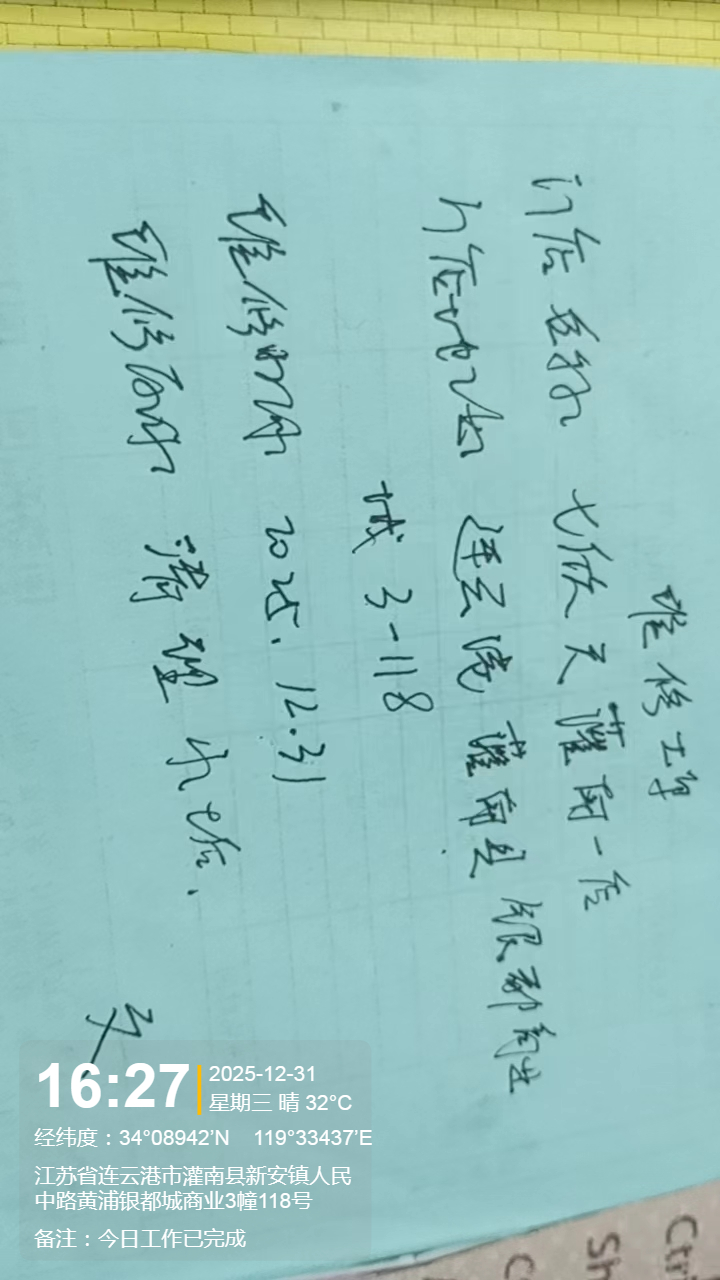 维修工单
门店名称 七欣天灌南一店
门店地址 连云港灌南县银都商业
城3-118
维修时间 2025.12.31
维修内容 清理水垢.
16:27
2025-12-31
星期三 晴 32°C
经纬度：34°08942'N 119°33437'E
江苏省连云港市灌南县新安镇人民
中路黄浦银都城商业3幢118号
备注：今日工作已完成
Ctrl
Sh